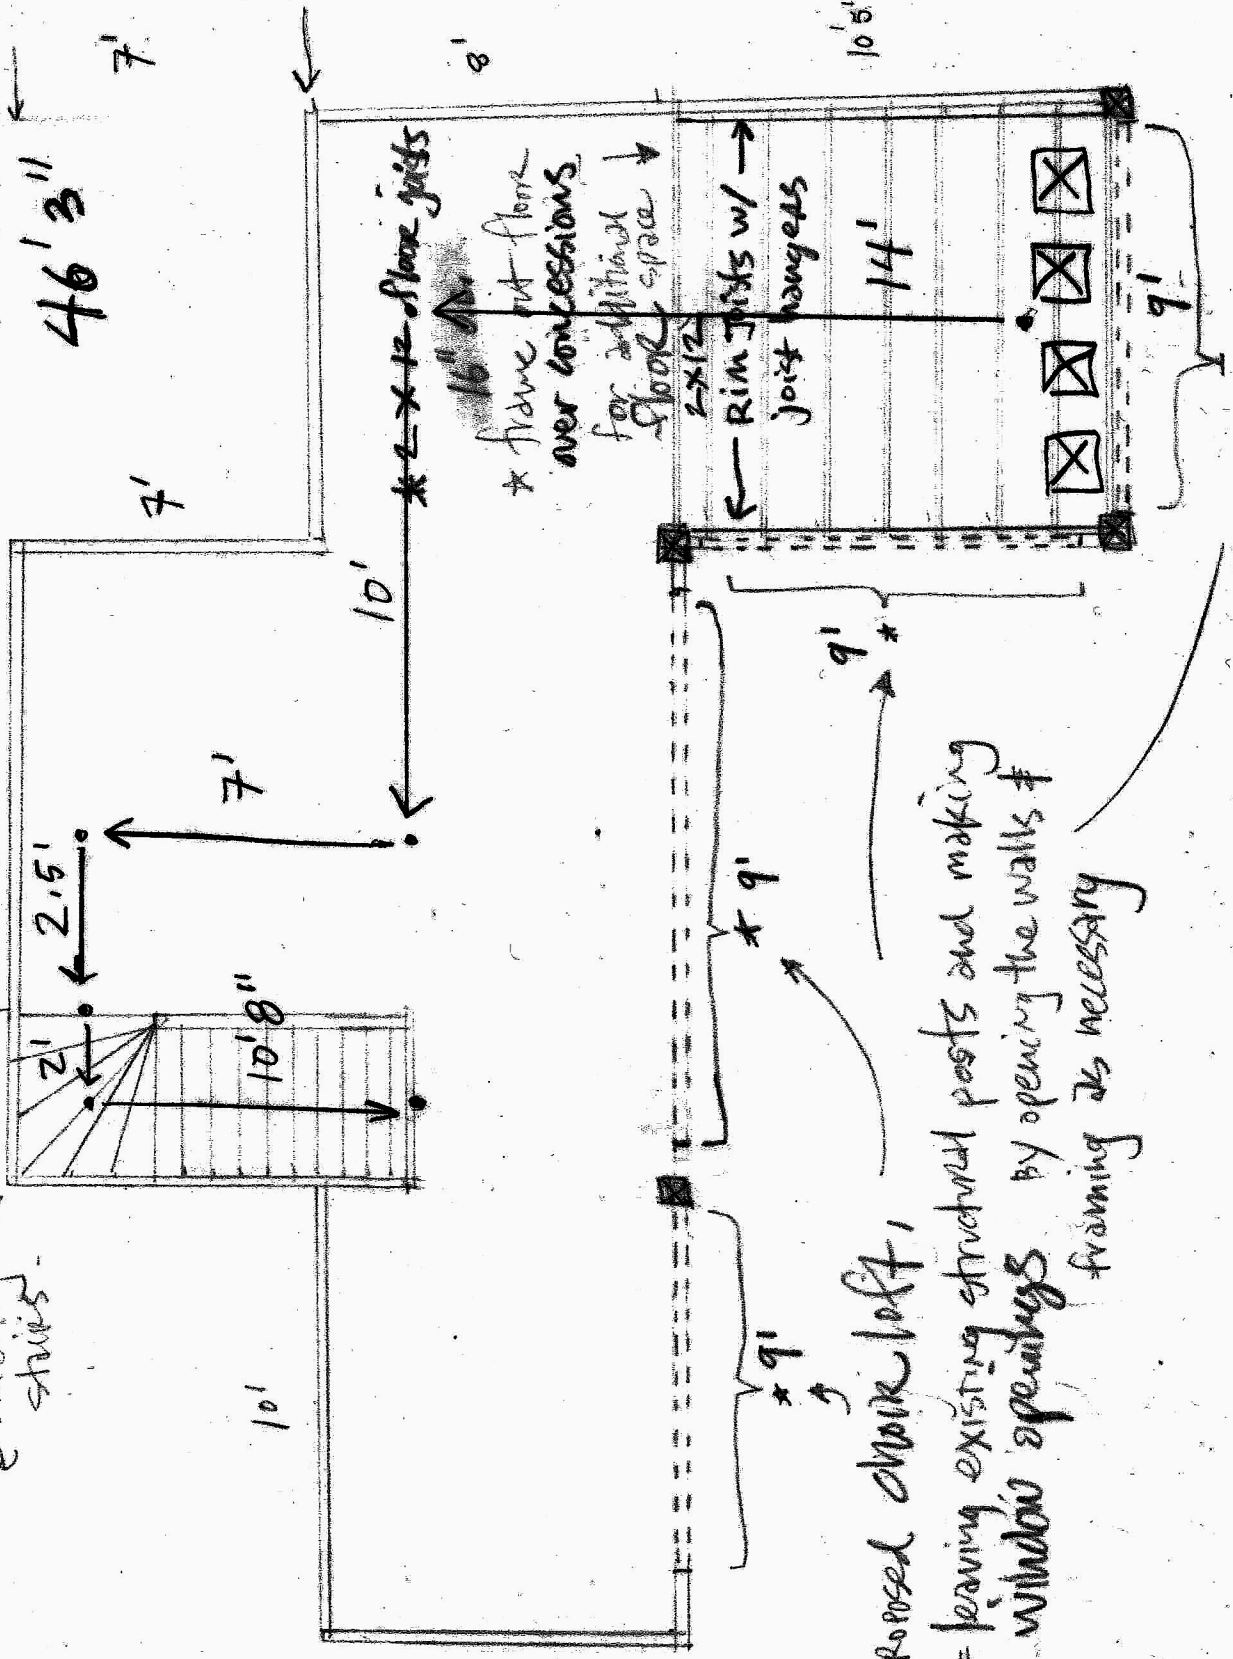 46' 3"
7'
8'
10'5"
7'
* 2 x 12 floor joists
16" o.c.
* frame out floor
over concessions
for additional
floor space
2x12
Rim Joists w/
joist hangers
14'
9'
10'
7'
2.5'
2'
10' 8"
stairs-
10'
9'
*
* 9'
* 9'
choir loft,
= leaving existing structural posts and making
window openings by opening the walls &
framing as necessary